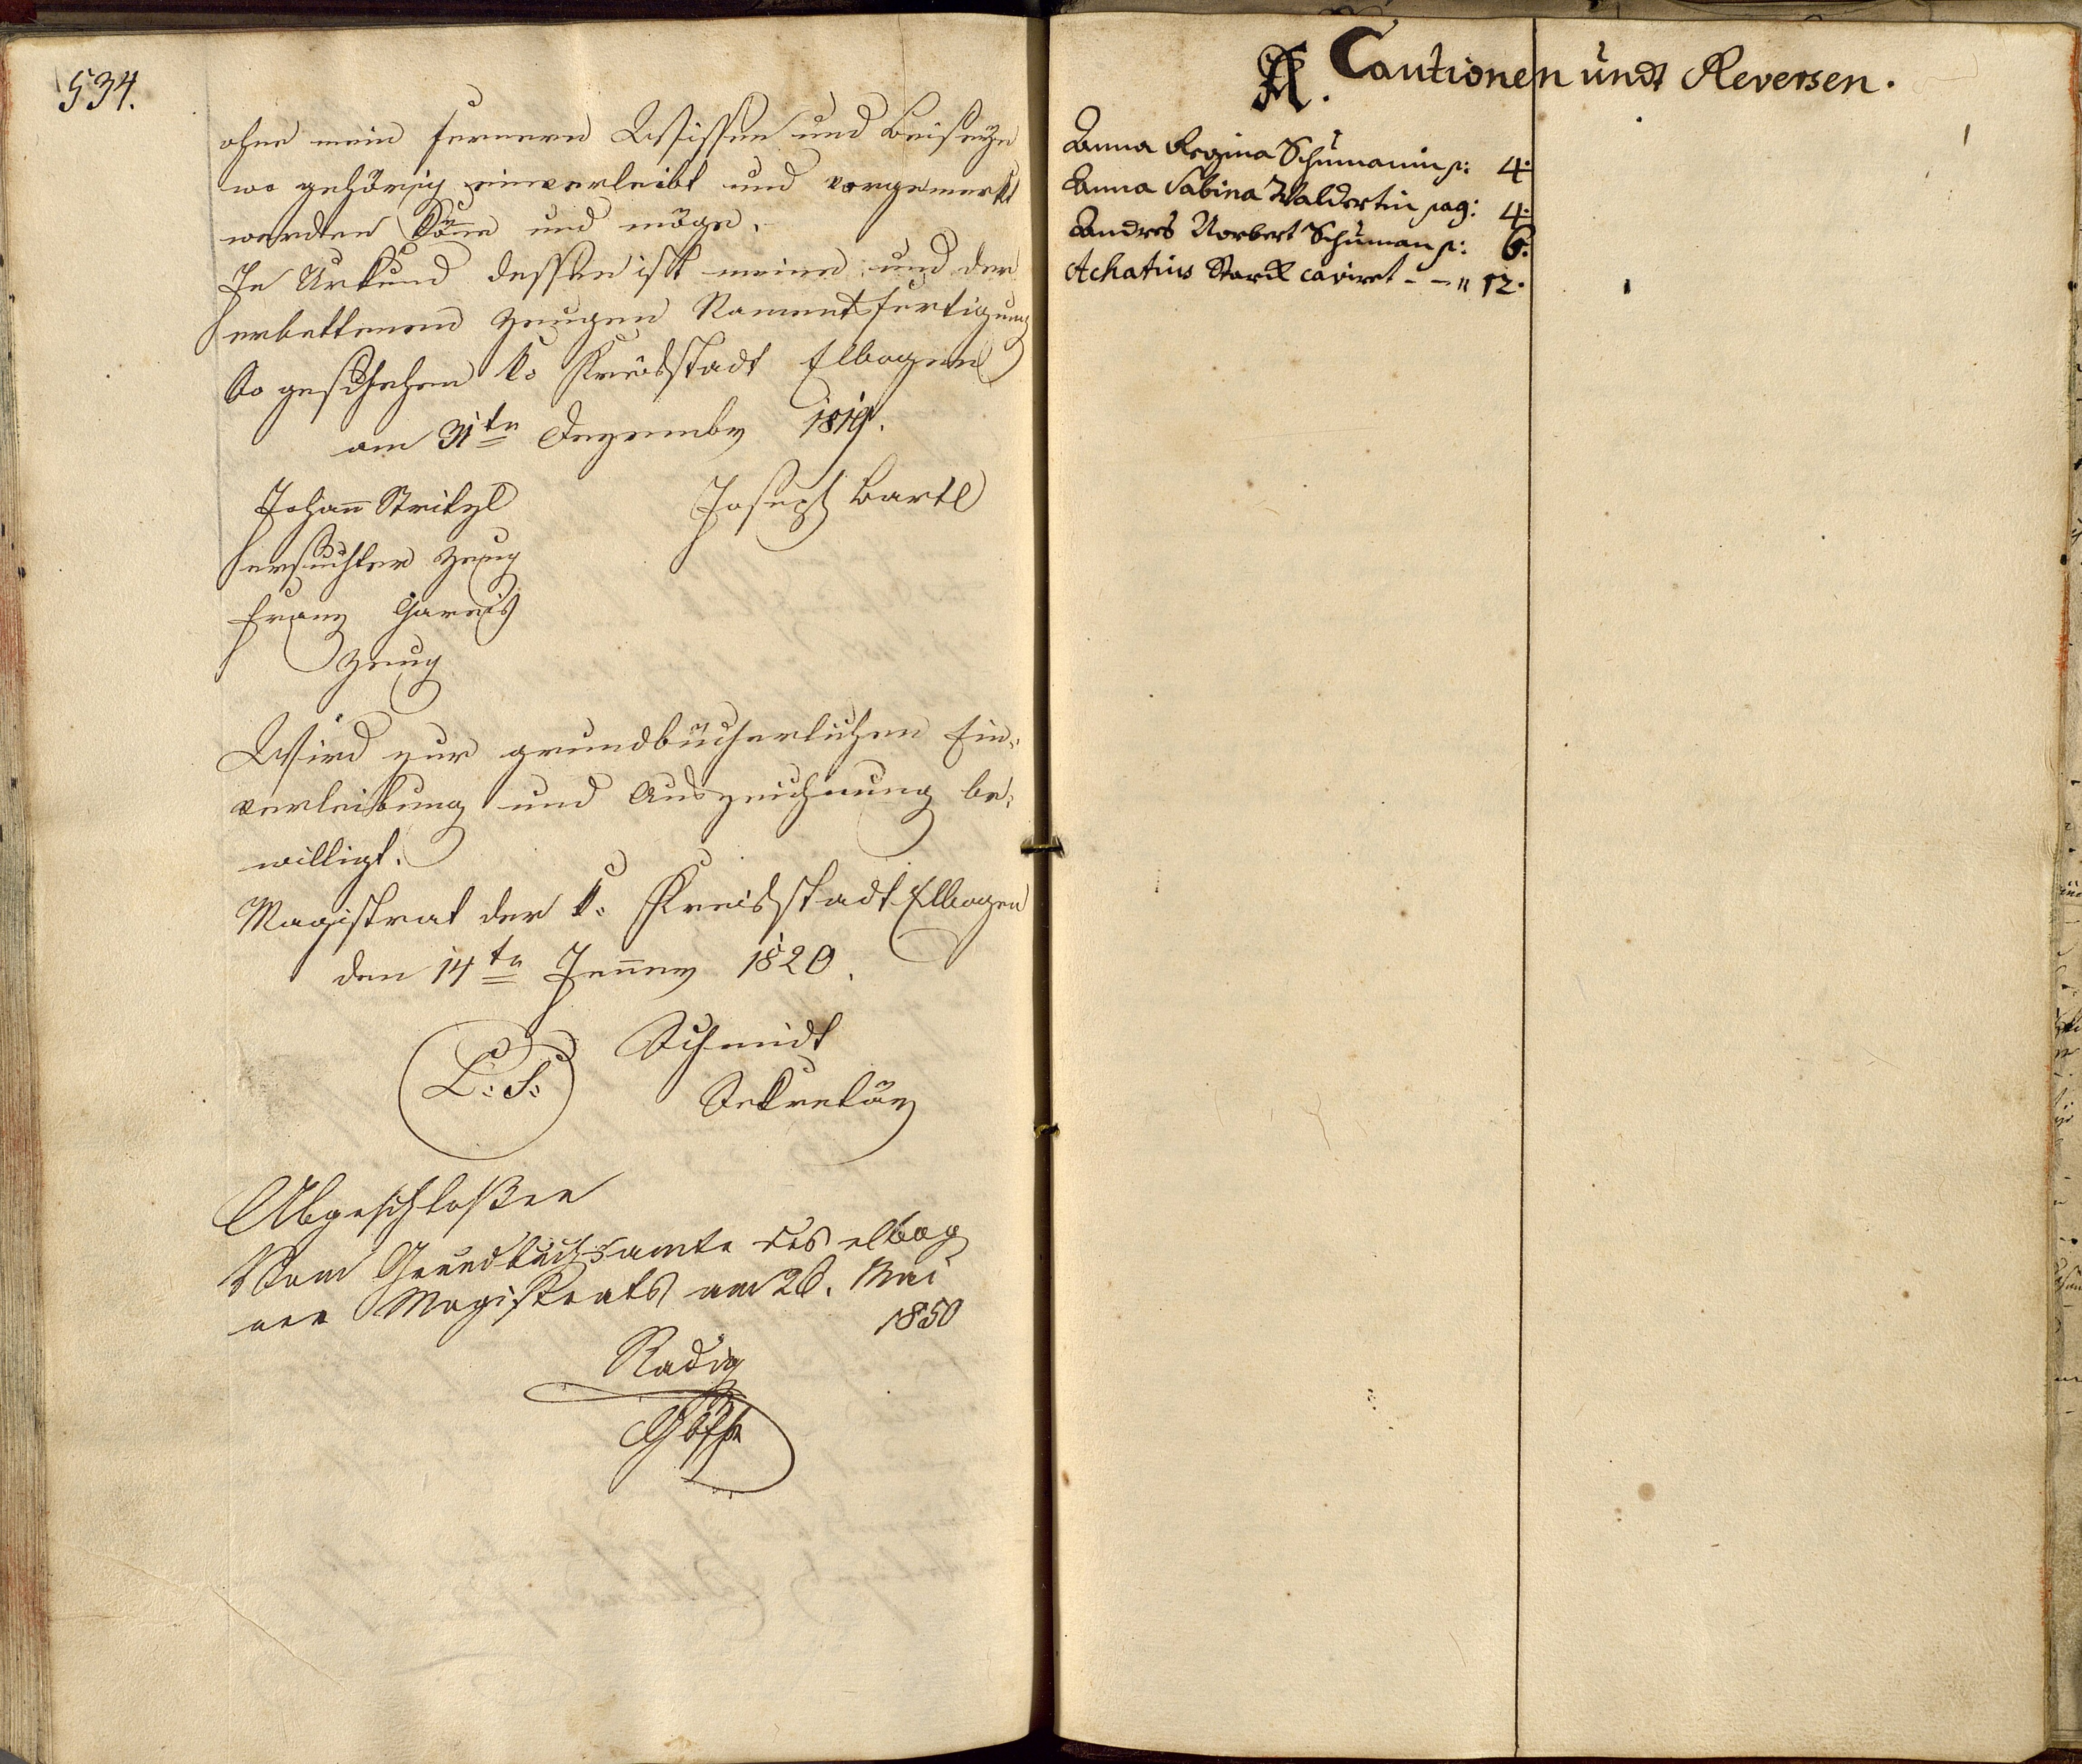 534.
ohne mein ferneres Wissen und Beiseyn
wo gehörig einverleibt und vorgemerkt
werden könne und möge.
In Urkund dessen ist meine und der
erbettenen Zeugen Namensfertigung
So geschehen k: Kreisstadt Elbogen
am 31ten Dezember 1819.
Johann Stritzl Joseph Bartl
ersuchter Zeug
Franz Gareis
Zeug
Wird zur grundbücherlichen Ein-
verleibung und Auszeichnung be-
willigt.
Magistrat der k: Kreisstadt Elbogen
den 14ten Jenner 1820.
L: S: Schmidt
Sekretär
Abgeschloßen
Vom Grundbuchsamte des elbog
ner Magistrats am 28. Mai
1850
Radig
A. Cautionen undt Reversen.
Anna Regina Schumanin p: 4.
Anna Sabina Waldertin pag: 4.
Andres Norbert Schuman p: 6.
Achatius Starck caviret - - " 12.